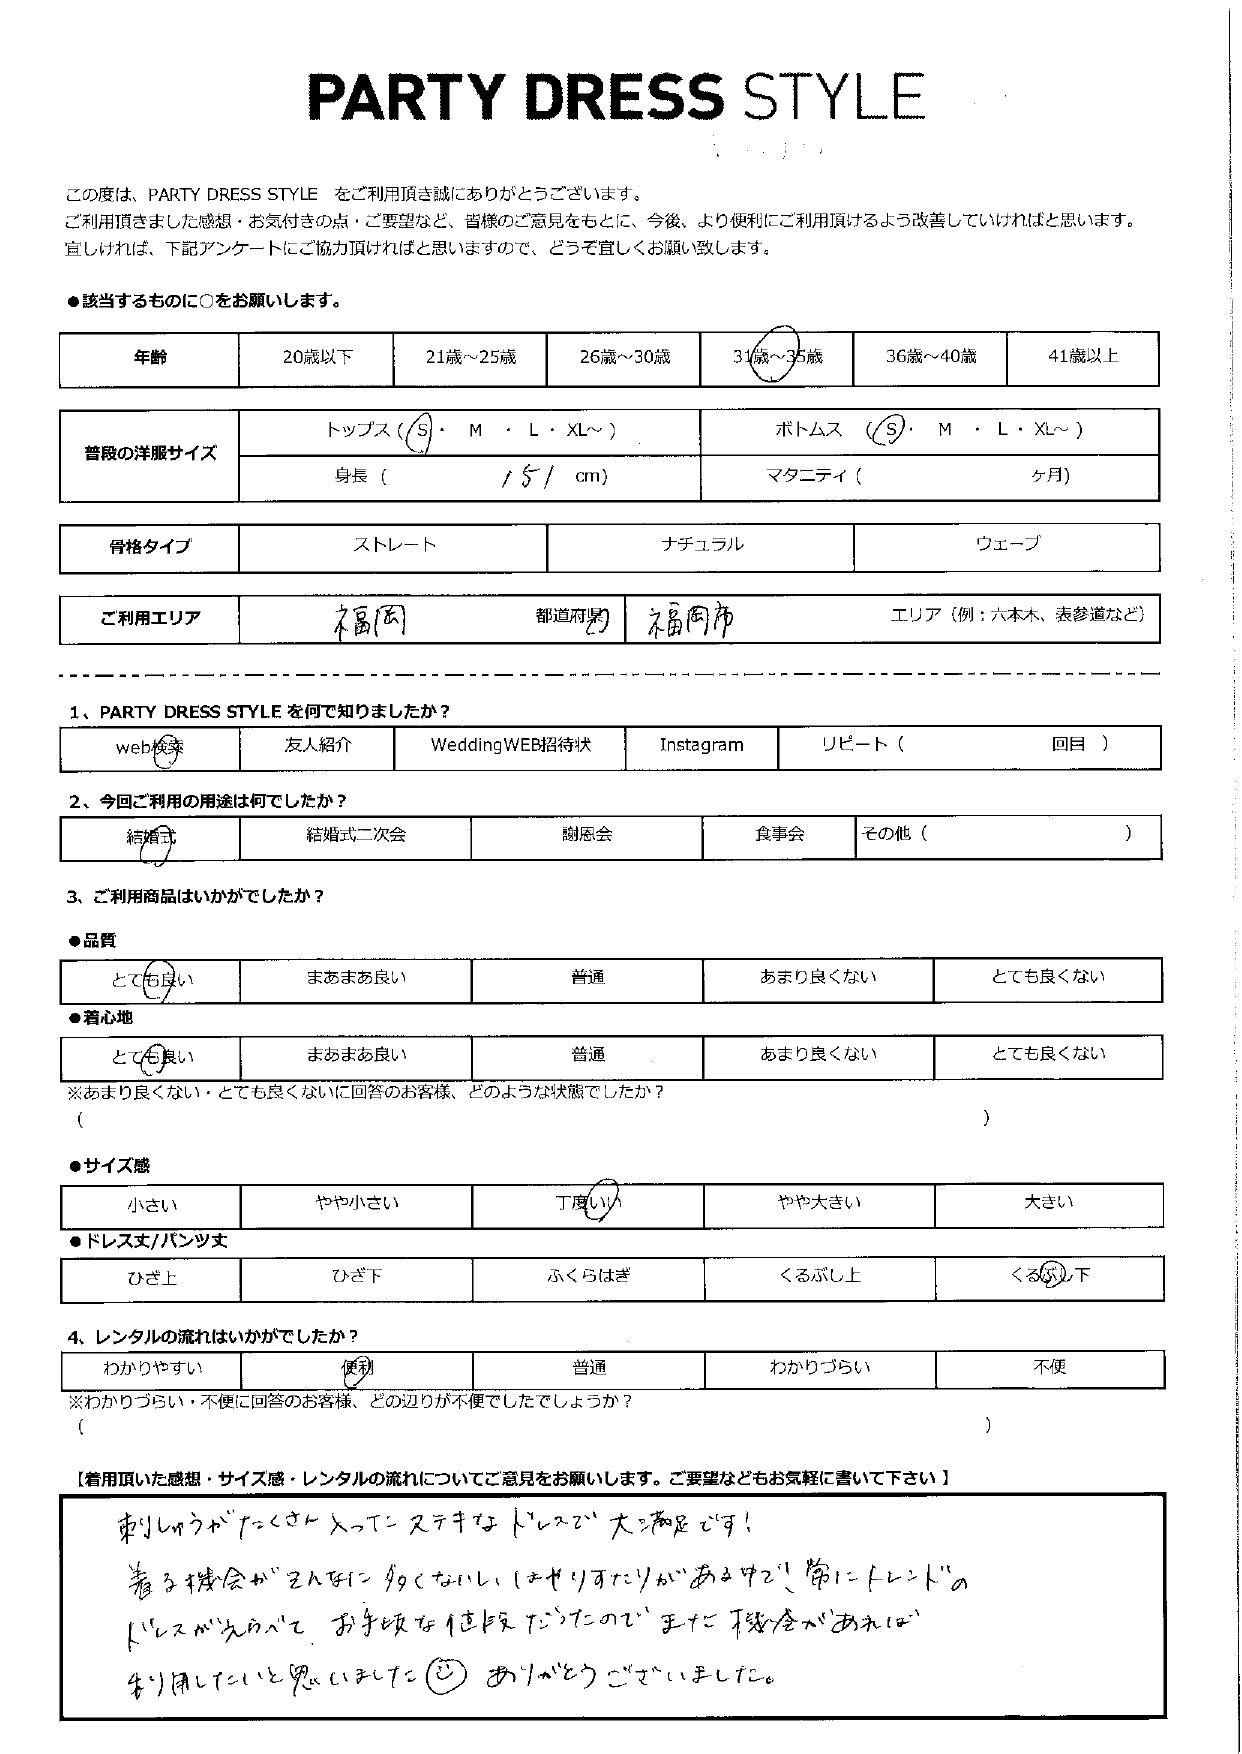 PARTY DRESS STYLE
この度は、PARTY DRESS STYLE をご利用頂き誠にありがとうございます。
ご利用頂きました感想・お気付きの点・ご要望など、皆様のご意見をもとに、今後、より便利にご利用頂けるよう改善していければと思います。
宜しければ、下記アンケートにご協力頂ければと思いますので、どうぞ宜しくお願い致します。
●該当するものに○をお願いします。
年齢 20歳以下 21歳～25歳 26歳～30歳 31歳～35歳 36歳～40歳 41歳以上
普段の洋服サイズ
トップス (S・ M ・ L・ XL～ ) ボトムス (S・ M ・ L・ XL～ )
身長 ( 151 cm) マタニティ ( ヶ月)
骨格タイプ ストレート ナチュラル ウェーブ
ご利用エリア 福岡 都道府県 福岡市 エリア（例：六本木、表参道など）
1、PARTY DRESS STYLEを何で知りましたか？
web検索 友人紹介 WeddingWEB招待状 Instagram リピート（ 回目 ）
2、今回ご利用の用途は何でしたか？
結婚式 結婚式二次会 謝恩会 食事会 その他（ ）
3、ご利用商品はいかがでしたか？
●品質
とても良い まあまあ良い 普通 あまり良くない とても良くない
●着心地
とても良い まあまあ良い 普通 あまり良くない とても良くない
※あまり良くない・とても良くないに回答のお客様、どのような状態でしたか？
( )
●サイズ感
小さい やや小さい 丁度いい やや大きい 大きい
●ドレス丈/パンツ丈
ひざ上 ひざ下 ふくらはぎ くるぶし上 くるぶし下
4、レンタルの流れはいかがでしたか？
わかりやすい 便利 普通 わかりづらい 不便
※わかりづらい・不便に回答のお客様、どの辺りが不便でしたでしょうか？
( )
【着用頂いた感想・サイズ感・レンタルの流れについてご意見をお願いします。ご要望などもお気軽に書いて下さい】
刺しゅうがたくさん入ってニステキなドレスで大満足です！
着る機会がそんなに多くないしはやりすたりがある中で、常にトレンドの
ドレスがえらべて、お手頃な値段だったのでまた機会があれば
利用したいと思いました☺ ありがとうございました。